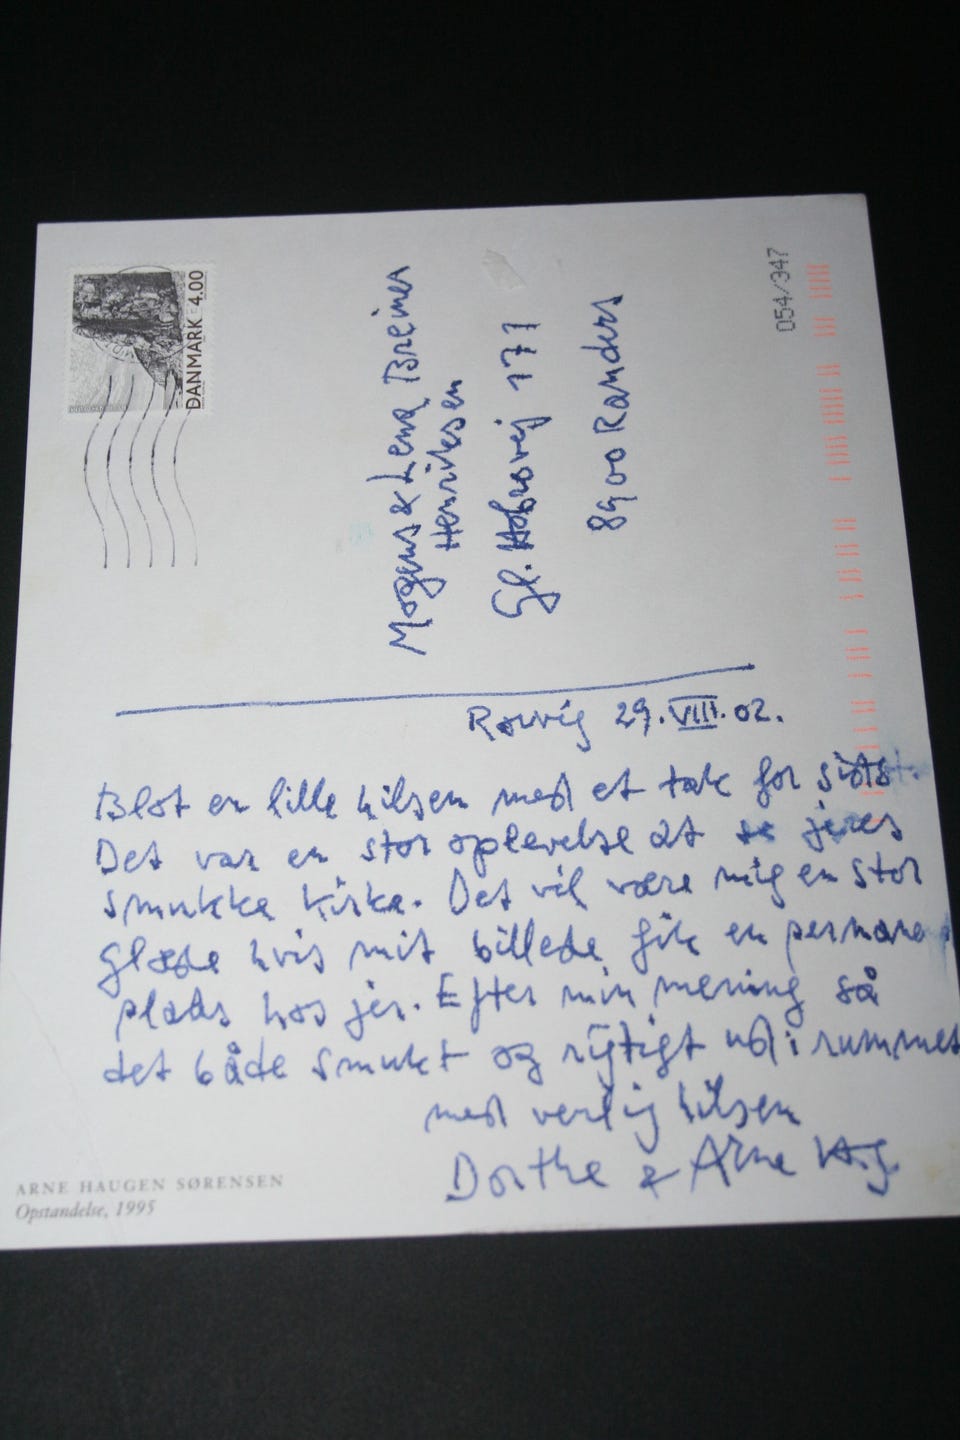 DANMARK 4.00
054/347
Mogens & Lena Breiner
Henriksen
Gl. Hobrovej 171
8900 Randers
Rørvig 29.VIII.02.
Blot en lille hilsen med et tak for sidst.
Det var en stor oplevelse at se jeres
smukke kirke. Det vil være mig en stor
glæde hvis mit billede fik en permane
plads hos jer. Efter min mening så
det både smukt og rigtigt ud i rummet
med venlig hilsen
Dorthe & Arne H.S.
ARNE HAUGEN SØRENSEN
Opstandelse, 1995